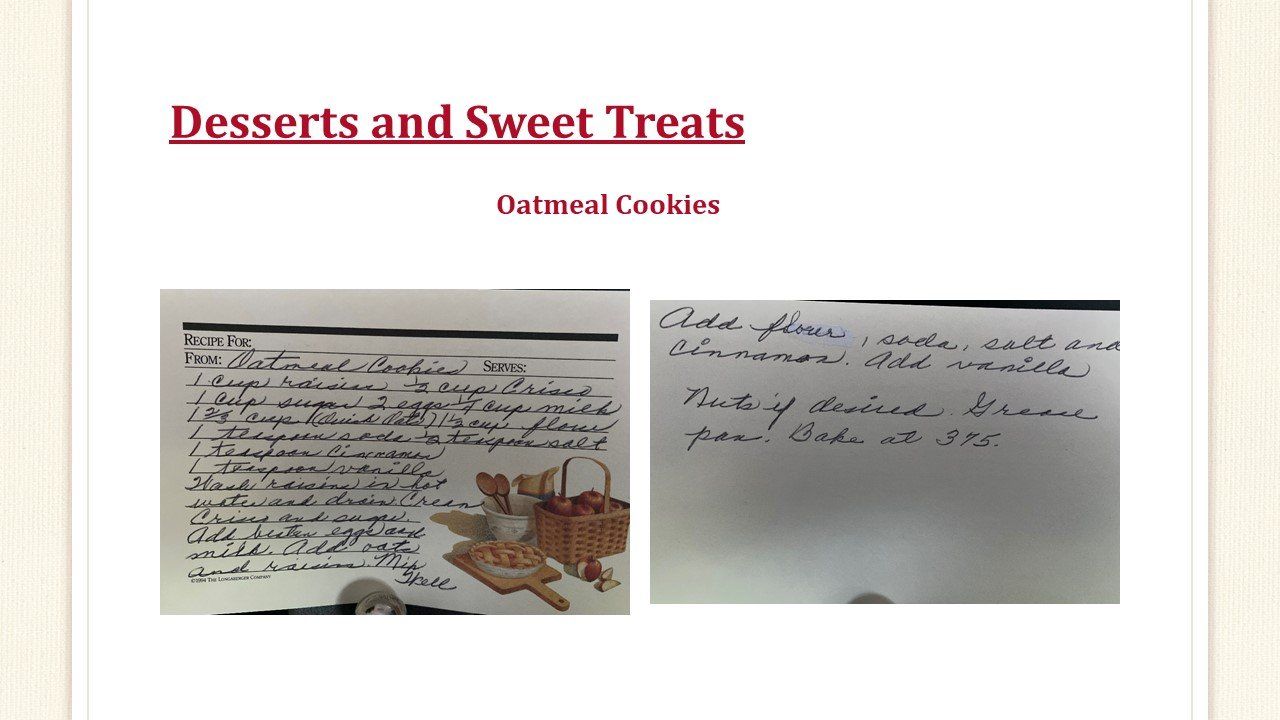 Desserts and Sweet Treats
Oatmeal Cookies
RECIPE FOR:
FROM: Oatmeal Cookies SERVES:
1 cup raisins 1/2 cup Crisco
1 cup sugar 2 eggs 1/4 cup milk
1 2/3 cup (Quick Oats) 1 1/2 cup flour
1 teaspoon soda 1/2 teaspoon salt
1 teaspoon cinnamon
1 teaspoon vanilla
Wash raisins in hot
water and drain. Cream
Crisco and sugar.
Add beaten eggs and
milk. Add oats
and raisins. Mix
Well
©1994 THE LONGABERGER COMPANY
Add flour, soda, salt and
cinnamon. Add vanilla
Nuts if desired. Grease
pan. Bake at 375.